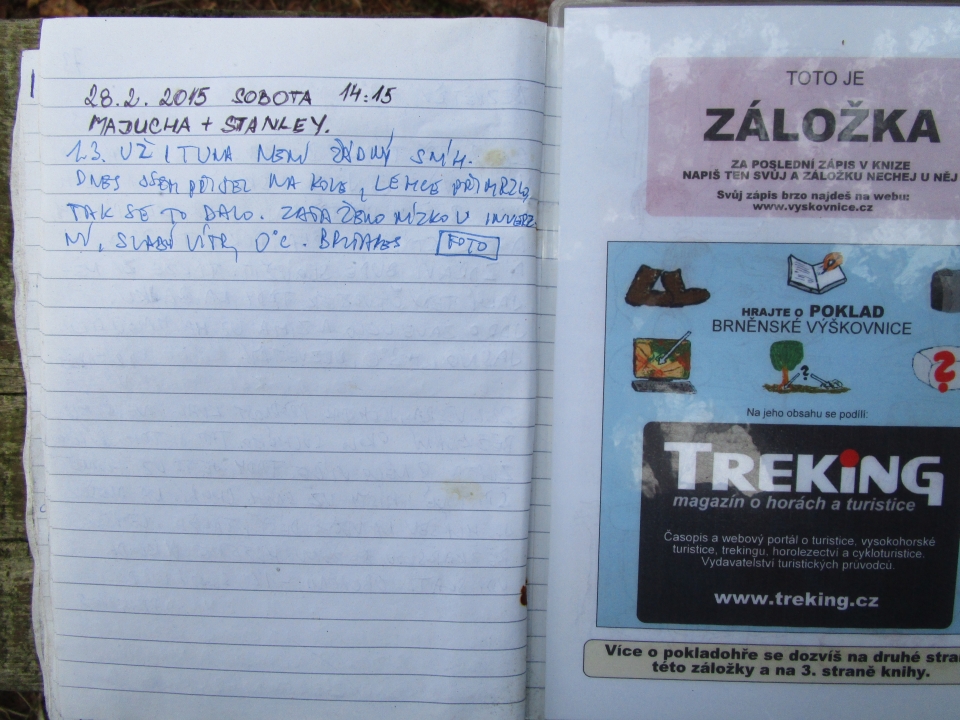 28.2. 2015 SOBOTA 14:15
MAJUCHA + STANLEY.
1.3. UŽ I TU NENÍ ŽÁDNÝ SNÍH.
DNES JSEM PŘIJEL NA KOLE, LEHCE PŘIMRZLO,
TAK SE TO DALO. ZATAŽENO NÍZKOU INVERZ-
NÍ, SLABÝ VÍTR, 0°C.
FOTO
TOTO JE
ZÁLOŽKA
ZA POSLEDNÍ ZÁPIS V KNIZE
NAPIŠ TEN SVŮJ A ZÁLOŽKU NECHEJ U NĚJ
Svůj zápis brzo najdeš na webu:
www.vyskovnice.cz
HRAJTE O POKLAD
BRNĚNSKÉ VÝŠKOVNICE
?
?
Na jeho obsahu se podílí:
TREKING
magazín o horách a turistice
Časopis a webový portál o turistice, vysokohorské
turistice, trekingu, horolezectví a cykloturistice.
Vydavatelství turistických průvodců.
www.treking.cz
Více o pokladohře se dozvíš na druhé stra
této záložky a na 3. straně knihy.